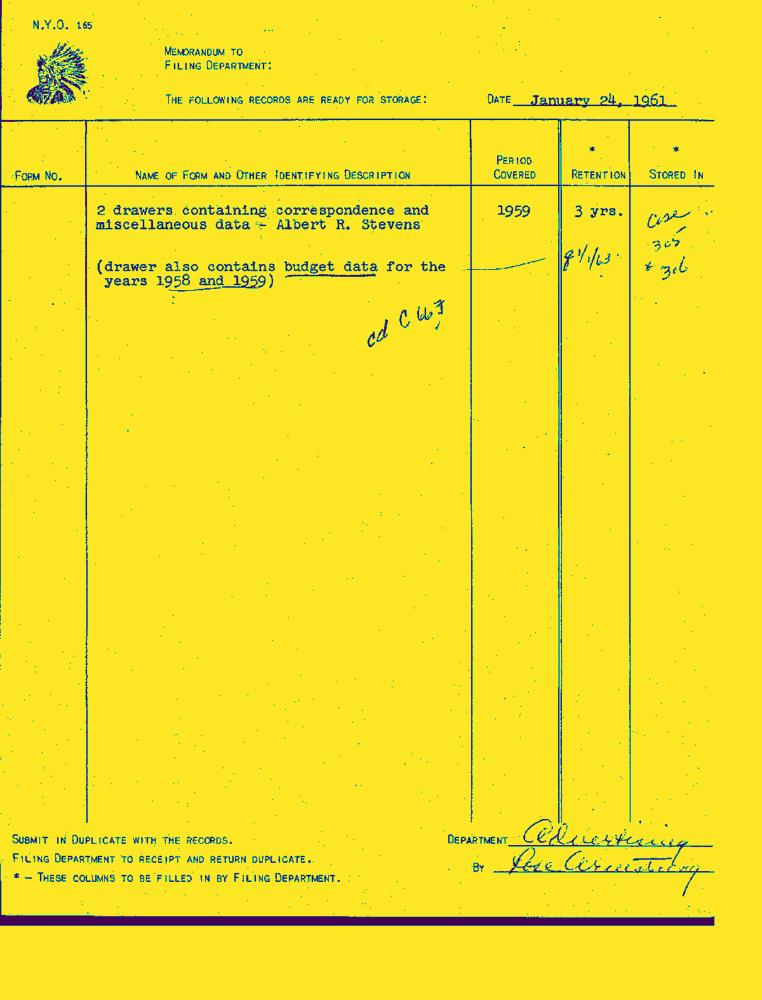 N.Y.O. 165
MEMORANDUM TO
FILING DEPARTMENT:
THE FOLLOWING RECORDS ARE READY FOR STORAGE:
DATE January 24, 1961
FORM No.
NAME OF FORM AND OTHER IDENTIFYING DESCRIPTION
PERIOD
COVERED
*
RETENTION
*
STORED IN
2 drawers containing correspondence and
miscellaneous data - Albert R. Stevens
1959
3 yrs.
case
305
+ 306
(drawer also contains budget data for the
years 1958 and 1959)
1/1/63
SUBMIT IN DUPLICATE WITH THE RECORDS.
FILING DEPARTMENT TO RECEIPT AND RETURN DUPLICATE.
* - THESE COLUMNS TO BE FILLED IN BY FILING DEPARTMENT.
DEPARTMENT Advertising
BY Rose Armstrong